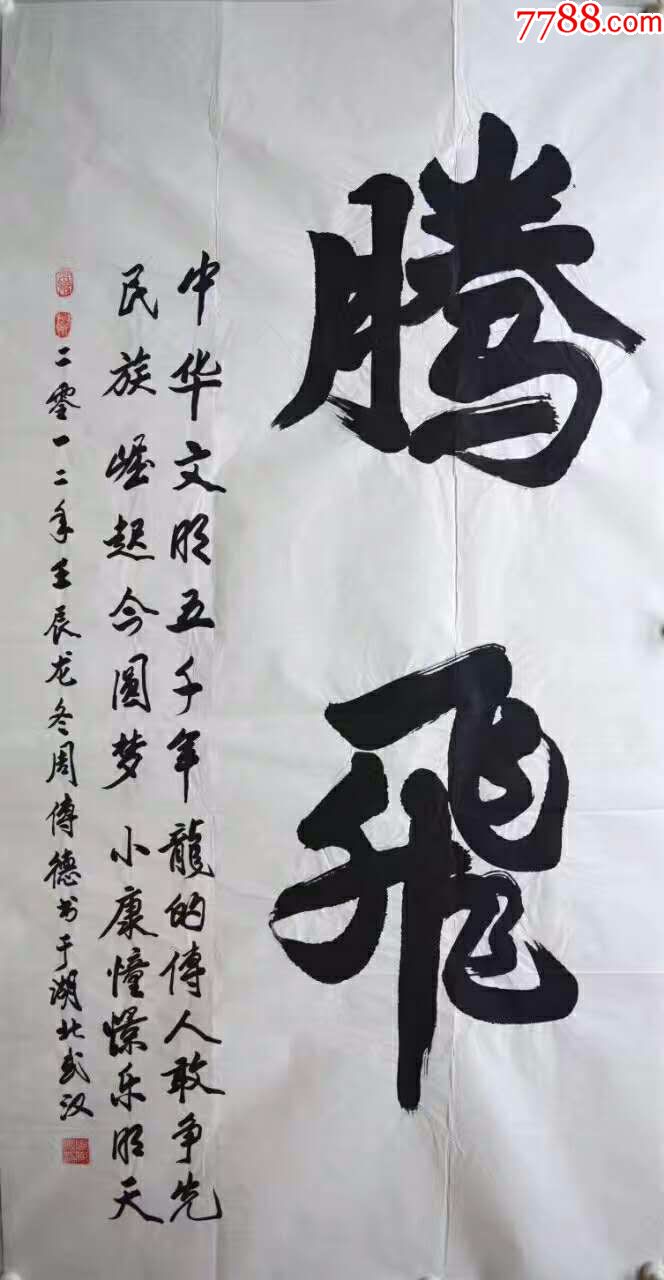 7788.com
腾飛
中华文明五千年龍的傳人敢争先
民族崛起今圆梦小康憧憬乐明天
二零一二年壬辰龙冬周傳德书于湖北武汉